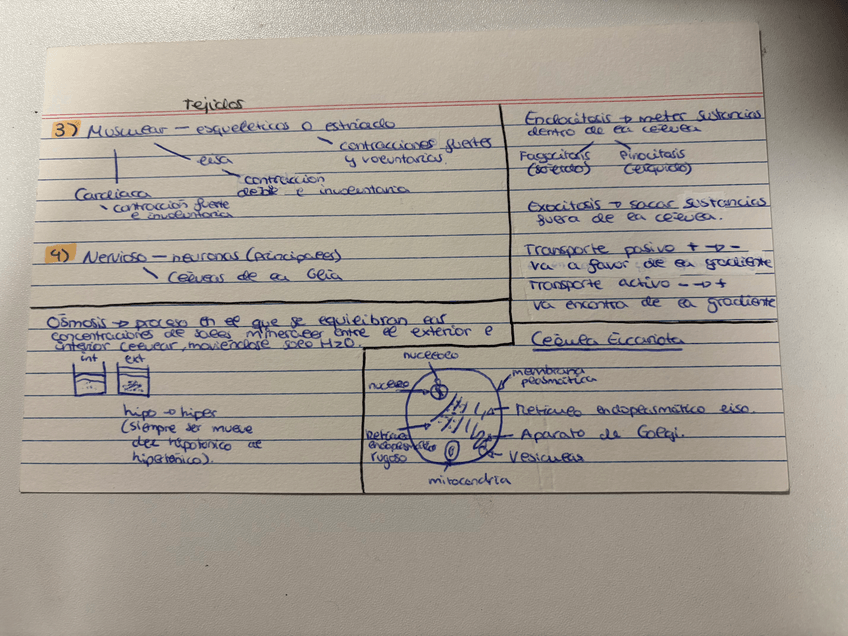 Tejidos
3) Muscular – esqueléticos o estriado
contracciones fuertes
y voluntarias.
lisa
contracción
debil e involuntaria
Cardiaca
contracción fuerte
e involuntaria
4) Nervioso – neuronas (principales)
Células de la Glía
Endocitosis → meter sustancias
dentro de la célula
Fagocitosis Pinocitosis
(sólido) (líquido)
Exocitosis → sacar sustancias
fuera de la célula.
Transporte pasivo + → -
va a favor de la gradiente
Transporte activo - → +
va encontra de la gradiente
Ósmosis → proceso en el que se equilibran las
concentraciones de sales minerales entre el exterior e
interior celular, moviéndose solo H2O.
int ext
hipo → hiper
(siempre se mueve
del hipotónico al
hipertónico).
Célula Eucariota
nucleolo
nucleo
membrana
plasmática
Retículo endoplasmático liso.
Aparato de Golgi.
Retículo
endoplasmático
rugoso
Vesicular
mitocondria